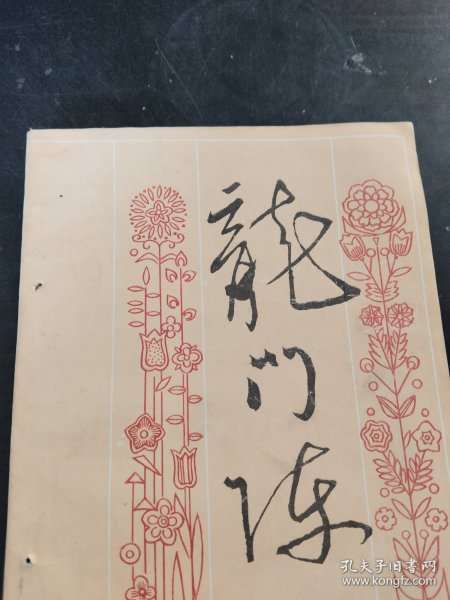 龍门阵
孔夫子旧书网
www.kongfz.com